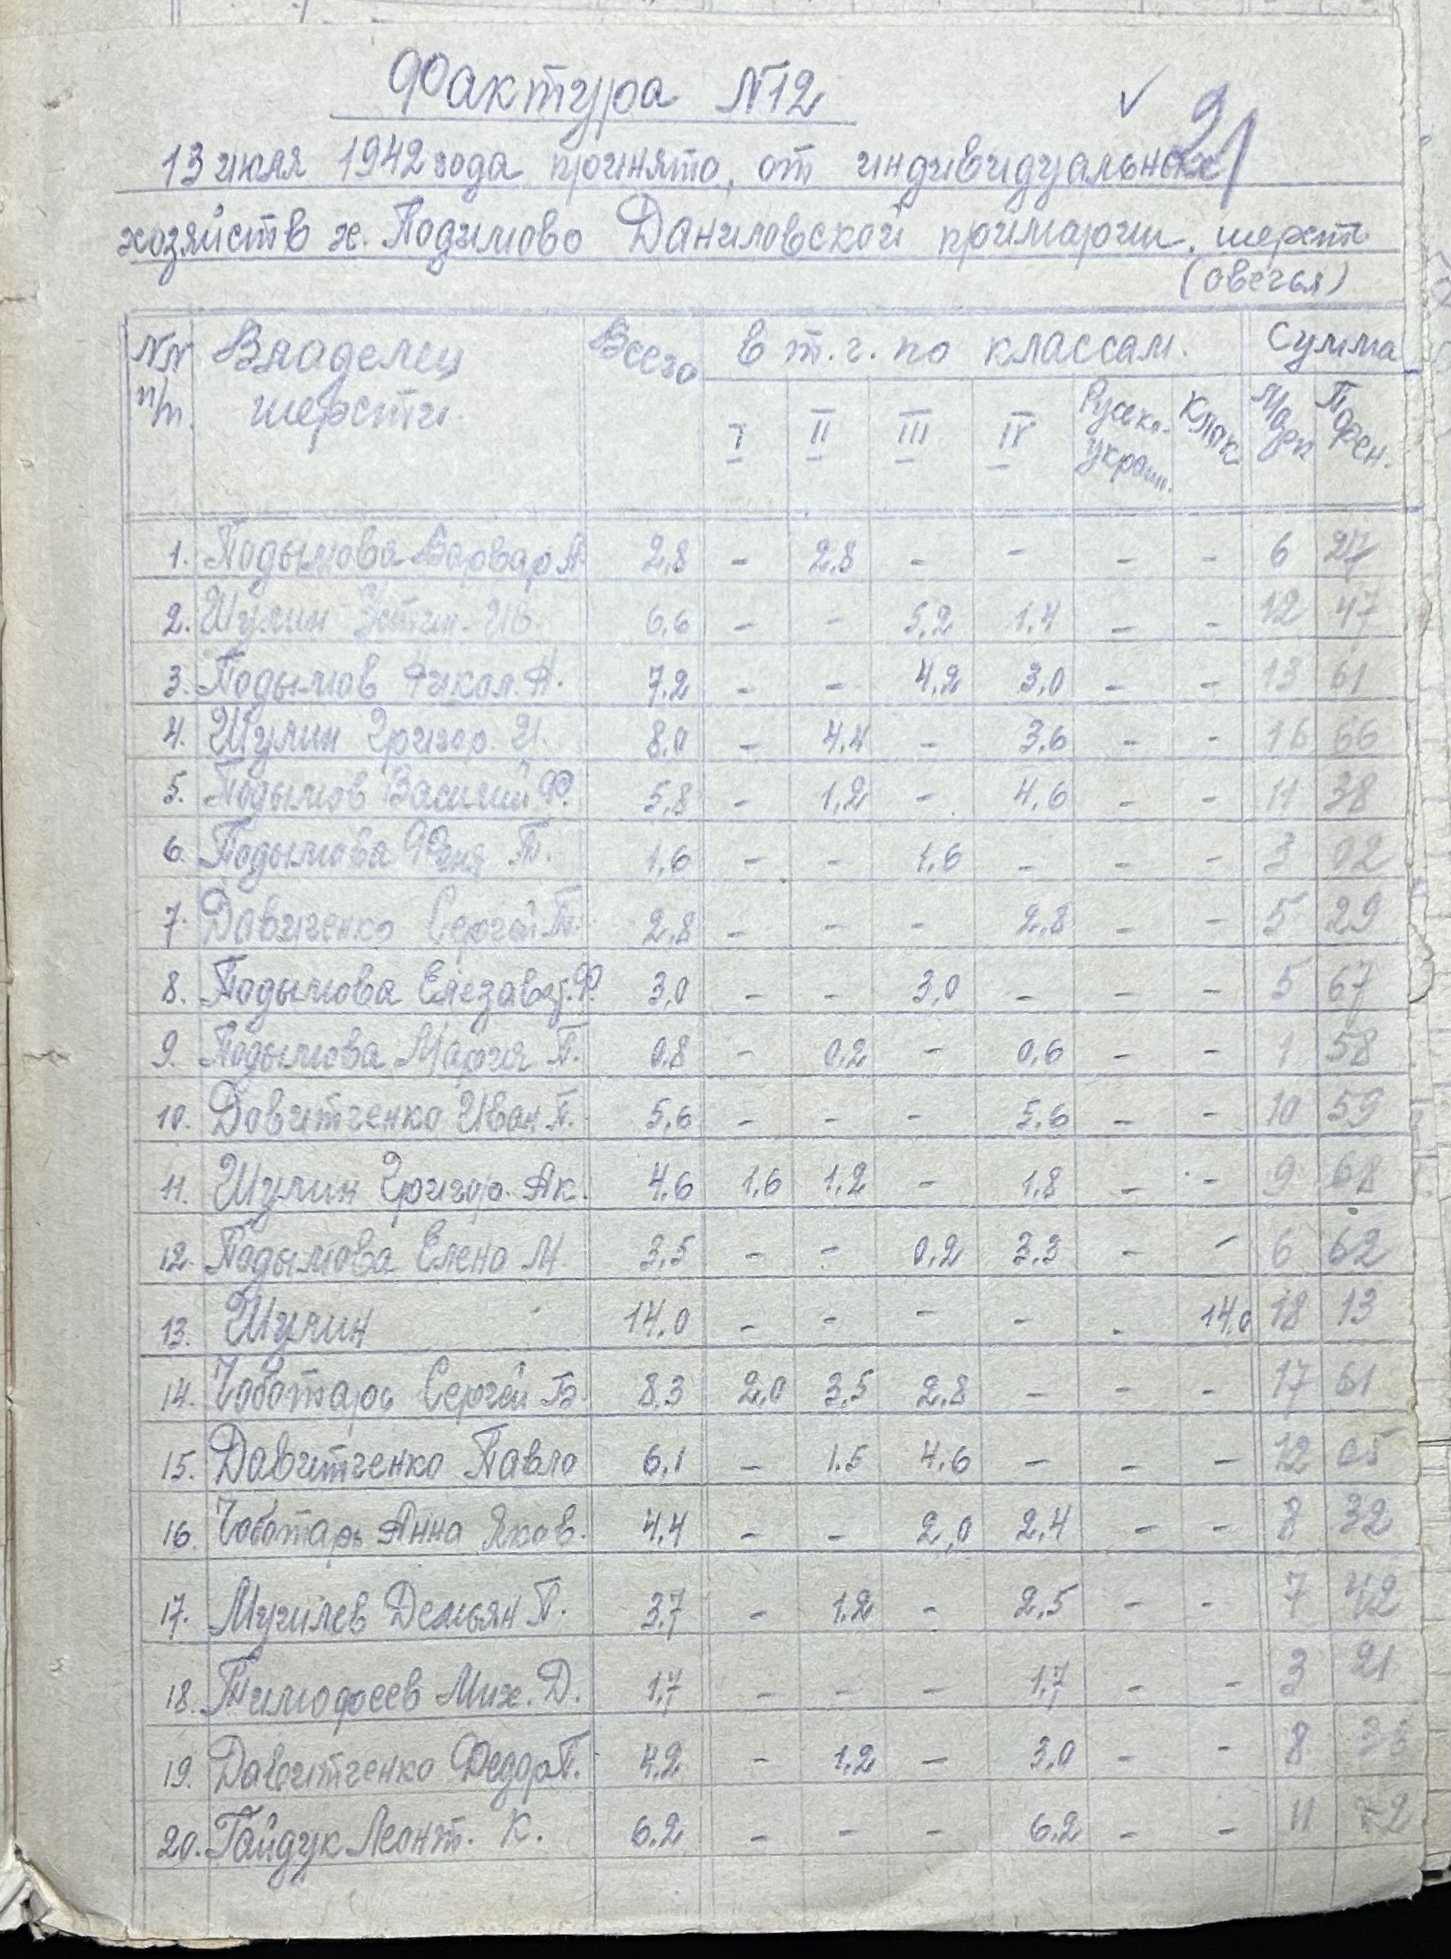 Фактура N12
✓ 21
13 июля 1942 года принято, от индивидуальных
хозяйств х. Подимово Даниловской примарии, шерсть
(овечья)
NN п/п. Владелец шерсти. Всего В т.ч. по классам. Сумма
I II III IV Русско-украин. Клок Марк Пфен.
1. Подымова Варвар А. 2,8 - 2,8 - - - - 6 27
2. Шулин Устин. Ив. 6,6 - - 5,2 1,4 - - 12 47
3. Подымов Никол. А. 7,2 - - 4,2 3,0 - - 13 61
4. Шулин Григор. И. 8,0 - 4,4 - 3,6 - - 16 66
5. Подымов Василий Ф. 5,8 - 1,2 - 4,6 - - 11 38
6. Подымова Феня П. 1,6 - - 1,6 - - - 3 02
7. Давиченко Сергей П. 2,8 - - - 2,8 - - 5 29
8. Подымова Елезавет. Ф. 3,0 - - 3,0 - - - 5 67
9. Подымова Мария П. 0,8 - 0,2 - 0,6 - - 1 58
10. Давитченко Иван П. 5,6 - - - 5,6 - - 10 59
11. Шулин Григор. Ак. 4,6 1,6 1,2 - 1,8 - - 9 68
12. Подымова Елена М. 3,5 - - 0,2 3,3 - - 6 62
13. Шулин 14,0 - - - - - 14,0 18 13
14. Чоботарь Сергей Б. 8,3 2,0 3,5 2,8 - - - 17 61
15. Давитченко Павло 6,1 - 1,5 4,6 - - - 12 05
16. Чоботарь Анна Яков. 4,4 - - 2,0 2,4 - - 8 32
17. Мугилев Демьян П. 3,7 - 1,2 - 2,5 - - 7 42
18. Тимофеев Мих. Д. 1,7 - - - 1,7 - - 3 21
19. Давитченко Федор П. 4,2 - 1,2 - 3,0 - - 8
20. Гайдук Леонт. К. 6,2 - - - 6,2 - - 11 72